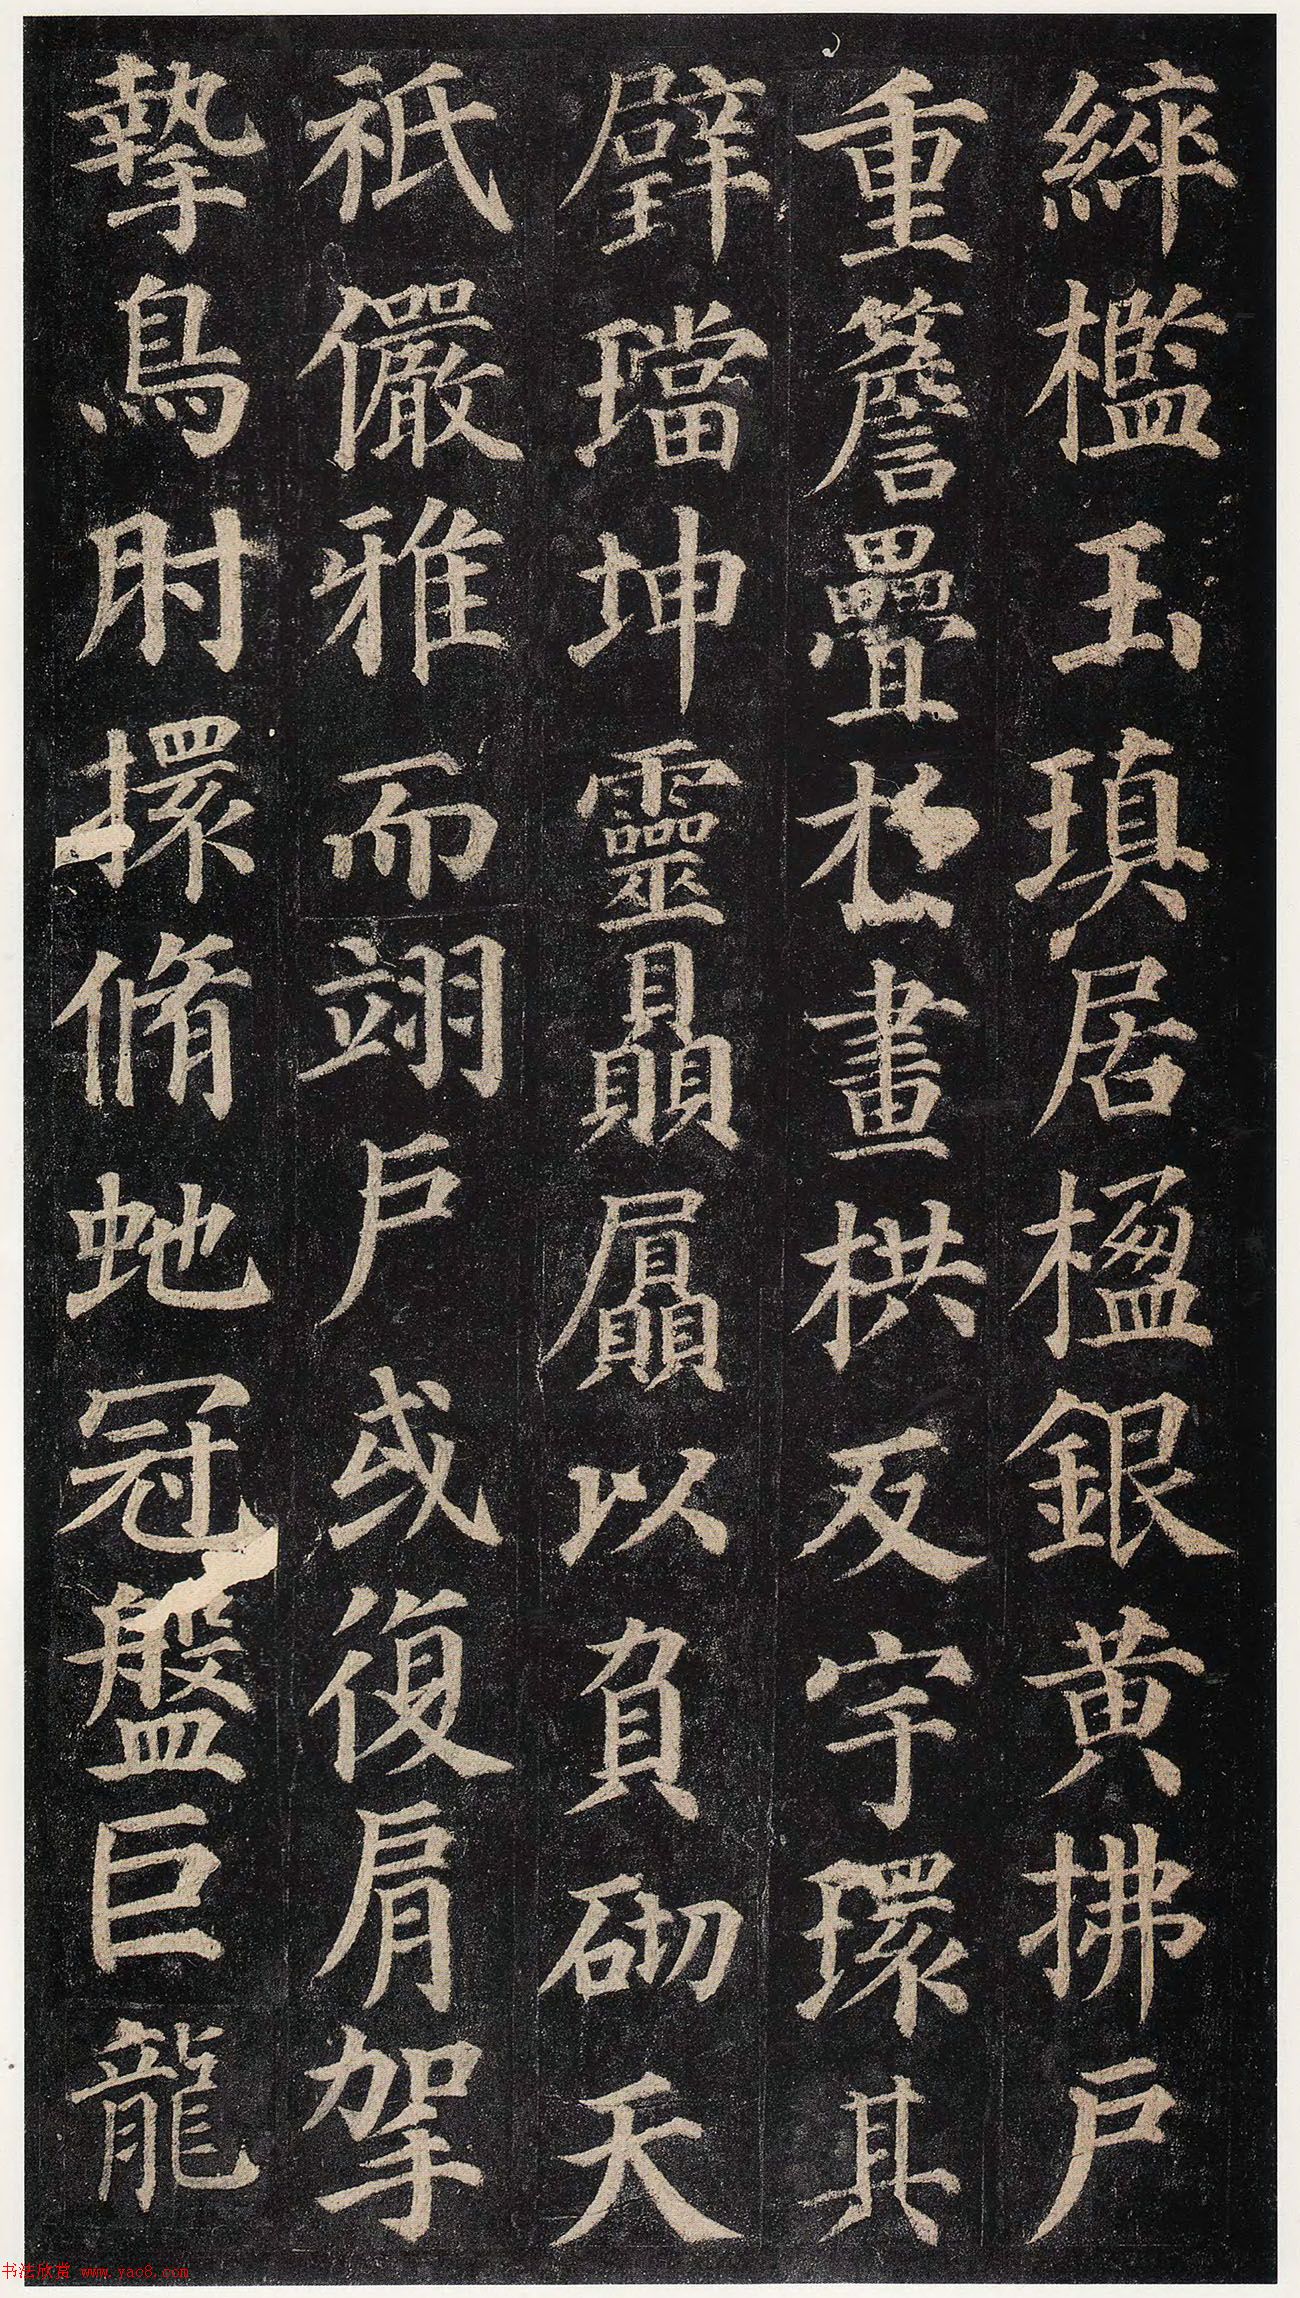 綷檻玉瑱居楹銀黃拂戶
重簷疊扵畫栱反宇環其
壁璫坤靈贔屭以負砌天
祇儼雅而翊戶或復肩挐
摯鳥肘擐脩虵冠盤巨龍
书法欣赏 www.yac8.com